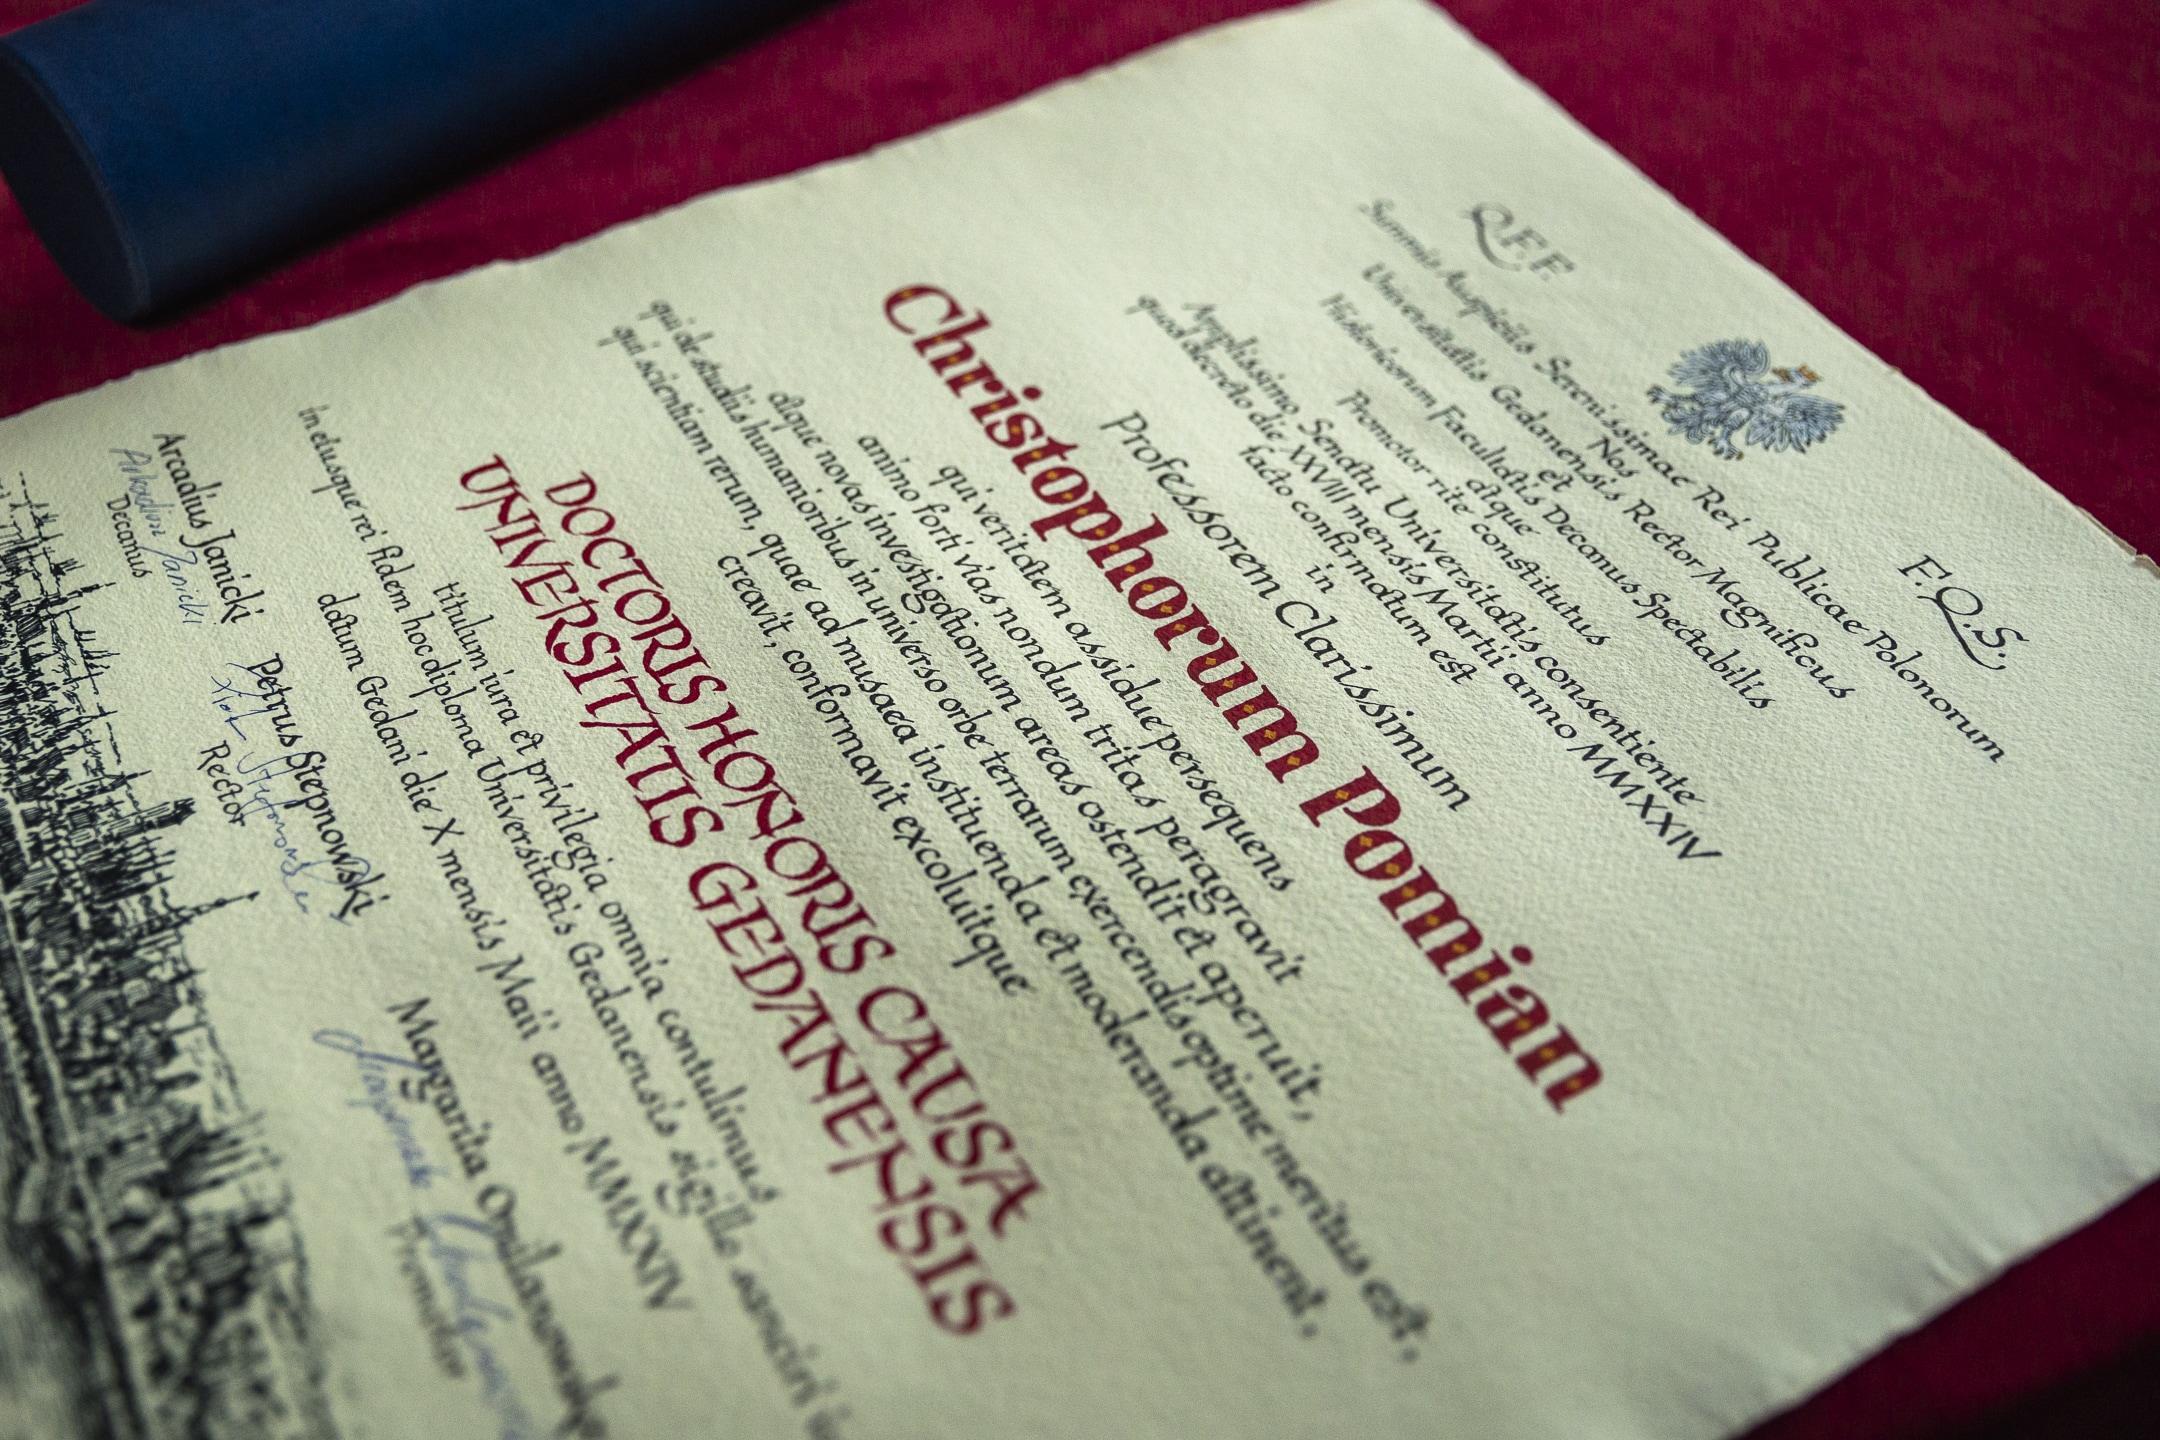 Q.F.F. F.Q.S.
Summis Auspiciis Serenissimae Rei Publicae Polonorum
Nos
Universitatis Gedanensis Rector Magnificus
et
Historicorum Facultatis Decanus Spectabilis
atque
Promotor rite constitutus
Amplissimo Senatu Universitatis consentiente
quod decreto die XXVIII mensis Martii anno MMXXIV
facto confirmatum est
in
Professorem Clarissimum
Christophorum Pomian
qui veritatem assidue persequens
animo forti vias nondum tritas peragravit
atque novas investigationum areas ostendit et aperuit,
qui de studiis humanioribus in universo orbe terrarum exercendis optime meritus est,
qui scientiam rerum, quae ad musaea instituenda et moderanda attinent,
creavit, conformavit excoluitque
DOCTORIS HONORIS CAUSA
UNIVERSITATIS GEDANENSIS
titulum iura et privilegia omnia contulimus
in eiusque rei fidem hoc diploma Universitatis Gedanensis sigillo sanciri
datum Gedani die X mensis Maii anno MMXXIV
Arcadius Janicki
Arkadiusz Janicki
Decanus
Petrus Stepnowski
Rector
Margarita Omilanowska
Promotor